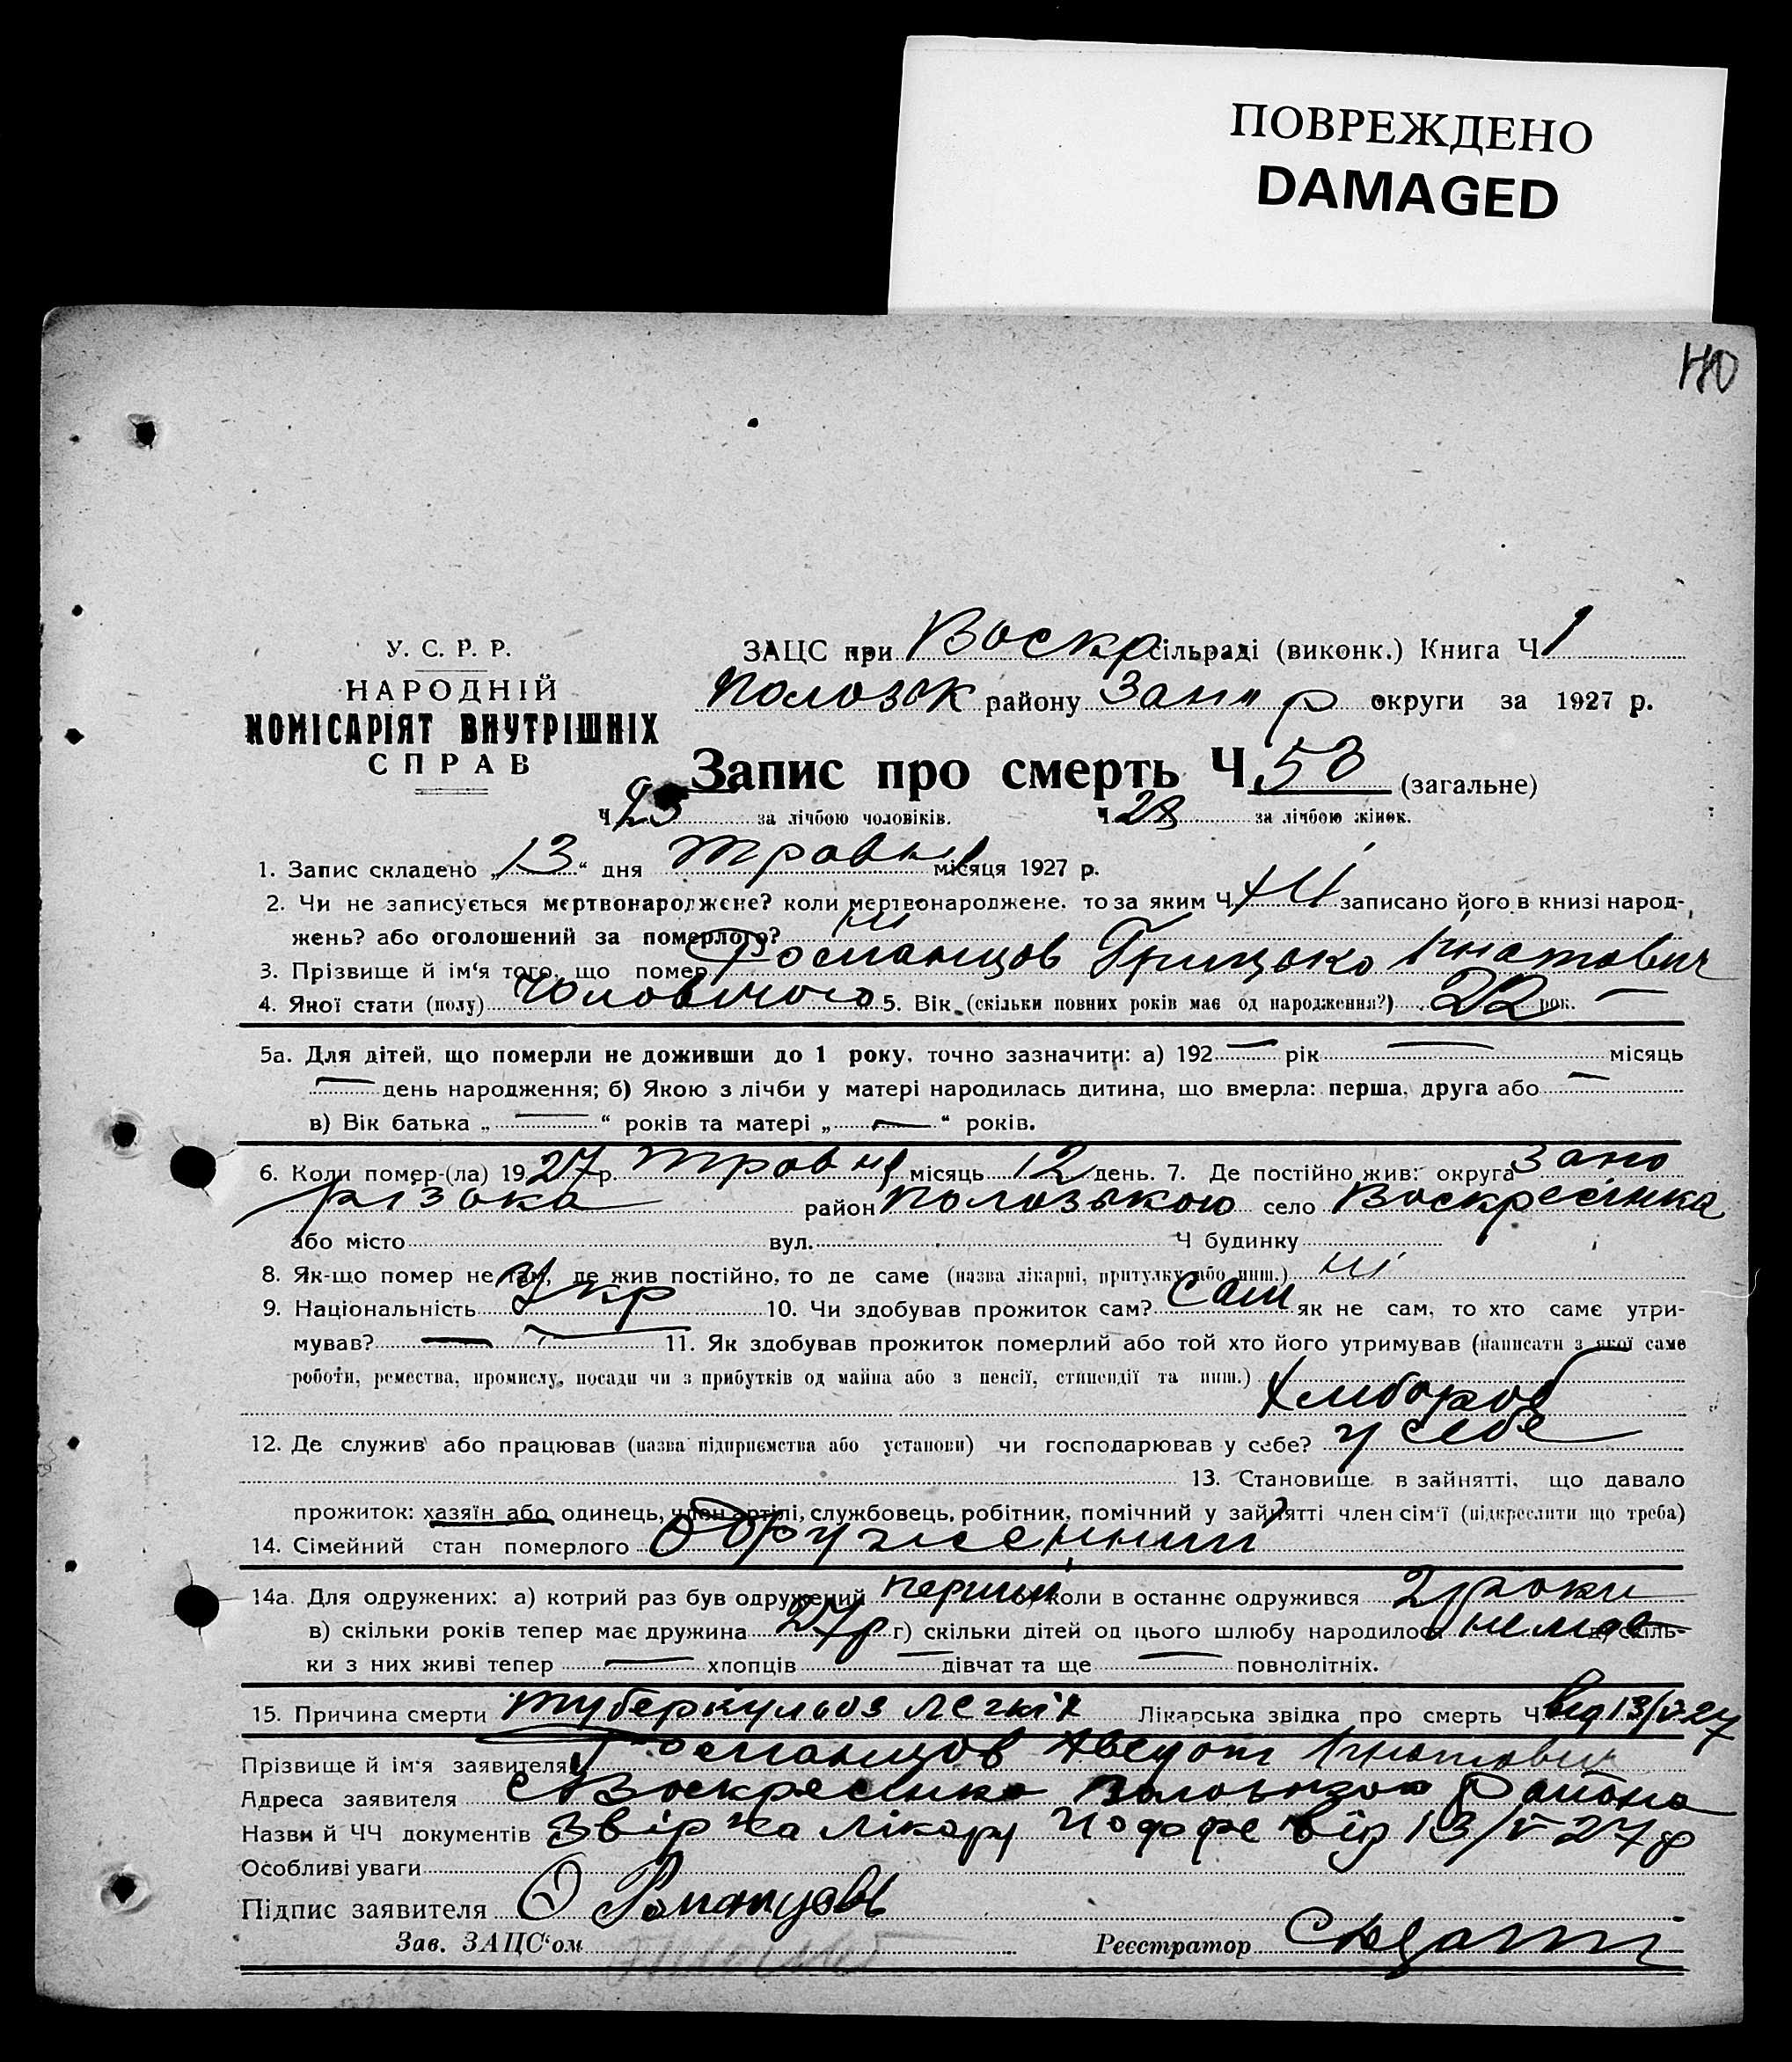 ПОВРЕЖДЕНО
DAMAGED
У. С. Р. Р.
НАРОДНІЙ
КОМІСАРІЯТ ВНУТРІШНІХ
СПРАВ
ЗАЦС при Воскр сільраді (виконк.) Книга Ч 1
Полозьк району Запор округи за 1927 р.
Запис про смерть Ч. 53 (загальне)
Ч. 25 за лічбою чоловіків. Ч. 28 за лічбою жінок.
1. Запис складено „13“ дня травня місяця 1927 р.
2. Чи не записується мертвонароджене? коли мертвонароджене, то за яким Ч. ні записано його в книзі народ-
жень? або оголошений за померлого? ні
3. Прізвище й ім'я того, що помер Романцов Грицько Ігнатович
4. Якої стати (полу) Чоловічого 5. Вік (скільки повних років має од народження?) 22 рок.
5а. Для дітей, що померли не доживши до 1 року, точно зазначити: а) 192 рік місяць
день народження; б) Якою з лічби у матері народилась дитина, що вмерла: перша, друга або
в) Вік батька „ “ років та матері „ “ років.
6. Коли помер-(ла) 1927 р. травня місяць 12 день. 7. Де постійно жив: округа Запо
різька район Полозького село Воскресінка
або місто вул. Ч будинку
8. Як-що помер не там, де жив постійно, то де саме (назва лікарні, притулку або инш.) ні
9. Національність Укр 10. Чи здобував прожиток сам? Сам як не сам, то хто саме утри-
мував? 11. Як здобував прожиток померлий або той хто його утримував (написати з якої саме
роботи, ремества, промислу, посади чи з прибутків од майна або з пенсії, стипендії та инш.)
Хлібороб
12. Де служив або працював (назва підприємства або установи) чи господарював у себе? у себе
13. Становище в зайнятті, що давало
прожиток: хазяїн або одинець, член артілі, службовець, робітник, помічний у зайнятті член сім'ї (підкреслити що треба)
14. Сімейний стан померлого Одружений
14а. Для одружених: а) котрий раз був одружений перший коли в останнє одружився 2 роки
в) скільки років тепер має дружина 27 р г) скільки дітей од цього шлюбу народилося немає д) скіль-
ки з них живі тепер хлопців дівчат та ще повнолітніх.
15. Причина смерти туберкульоз легкіх Лікарська звідка про смерть Ч від 13/V-27
Прізвище й ім'я заявителя Романцов Август Ігнатович
Адреса заявителя с Воскресінка району
Назви й ЧЧ документів лікаря Йоффе від 13/V 27 р
Особливі уваги
Підпис заявителя Романцов
Зав. ЗАЦС'ом Реєстратор